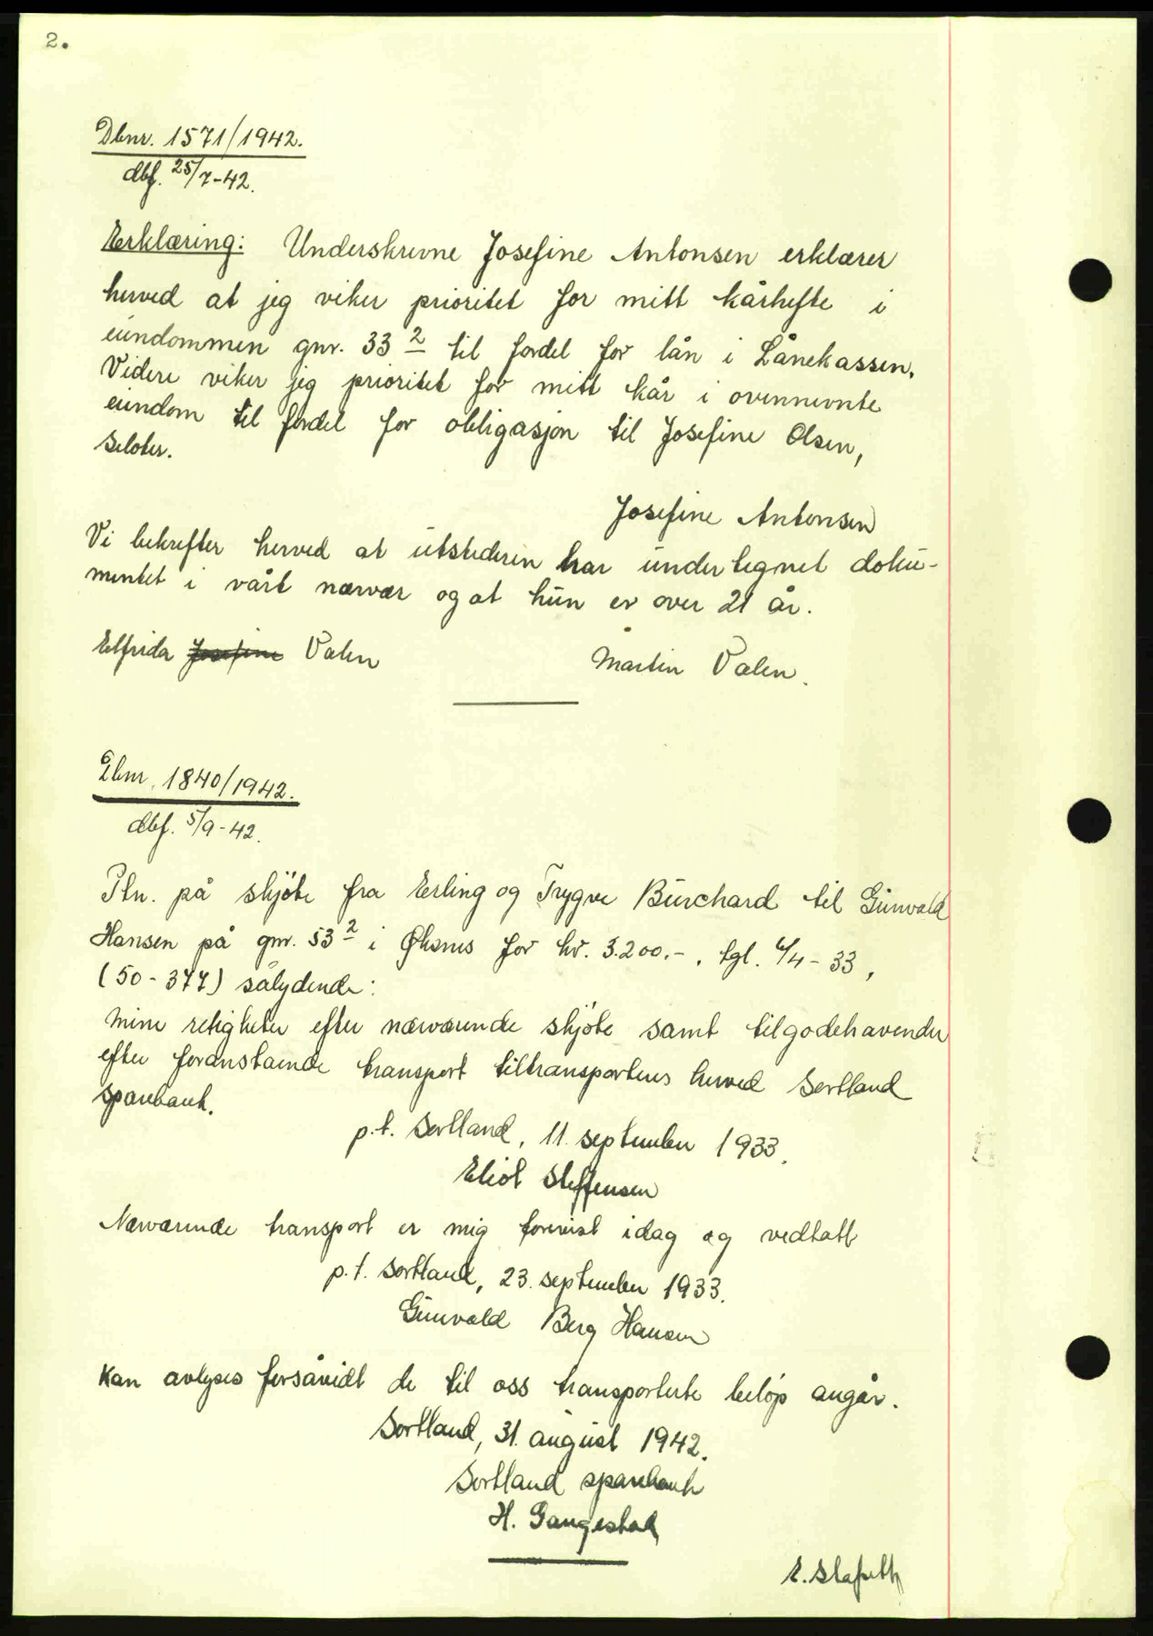 2.
Dbnr. 1571/1942.
dbf. 25/7-42.
Erklæring: Underskrevne Josefine Antonsen erklærer
herved at jeg viker prioritet for mitt kårhefte i
eiendommen gnr. 33 2 til fordel for lån i Lånekassen.
Videre viker jeg prioritet for mitt kår i ovennevnte
eiendom til fordel for obligasjon til Josefine Olsen,
Seloter.
Josefine Antonsen
Vi bekrefter herved at utstederen har undertegnet doku-
mentet i vårt nærvær og at hun er over 21 år.
Elfrida Josefine Valen
Martin Valen.
Dbnr. 1840/1942.
dbf. 5/9-42.
Ptn. på skjøte fra Erling og Trygve Burchard til Gunvald
Hansen på gnr. 53 2 i Øksnes for kr. 3.200.-, tgl. 6/4-33,
(50-377) sålydende:
Mine retigheter efter nærværende skjøte samt tilgodehavender
efter foranstående transport tiltransporteres herved Sortland
sparebank.
p.t. Sortland, 11. september 1933.
Eliot Steffensen
Nærværende transport er mig forevist idag og vedtatt
p.t. Sortland, 23. september 1933.
Gunvald Berg Hansen
Kan avlyses forsåvidt de til oss transporterte beløp angår.
Sortland, 31. august 1942.
Sortland sparebank
H. Gangestad